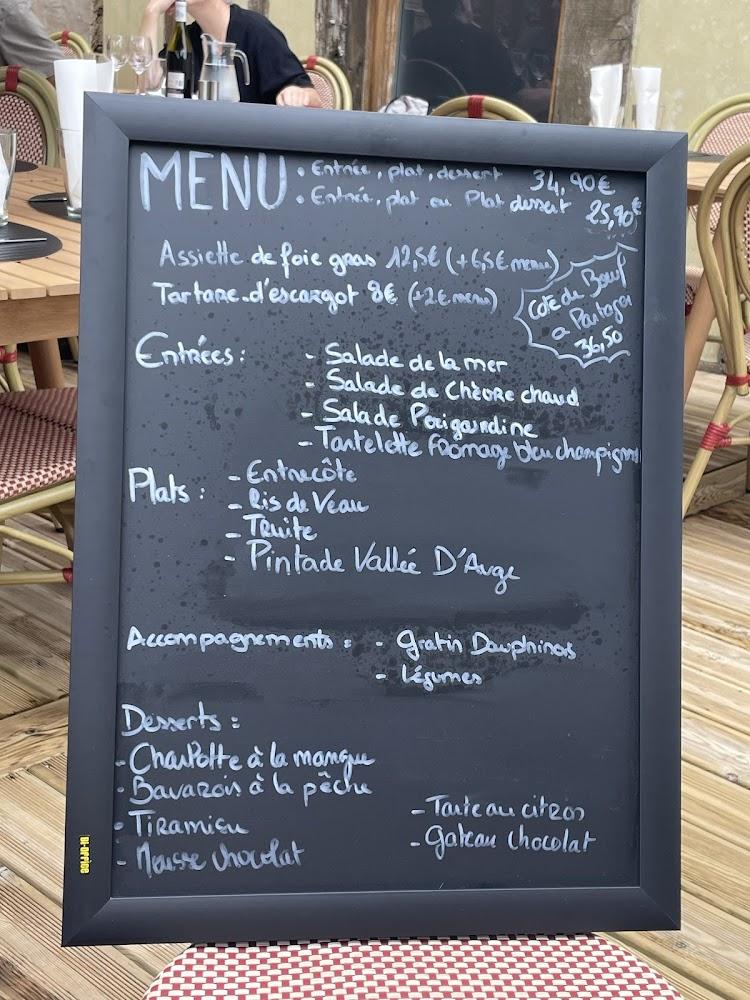 MENU
• Entrée, plat, dessert 34,90€
• Entrée, plat ou Plat dessert 25,90€
Assiette de foie gras 12,5€ (+6,5€ menu)
Tartare d'escargot 8€ (+2€ menu)
Cote de Bœuf
a Partager
36,50
Entrées :
- Salade de la mer
- Salade de Chèvre chaud
- Salade Perigourdine
- Tartelette fromage bleu champignons
Plats :
- Entrecôte
- Ris de Veau
- Truite
- Pintade Vallée D'Auge
Accompagnements :
- Gratin Dauphinois
- Légumes
Desserts :
- Charlotte à la mangue
- Bavarois à la pêche
- Tiramisu
- Mousse chocolat
- Tarte au citron
- Gateau chocolat
BI-OFFICE